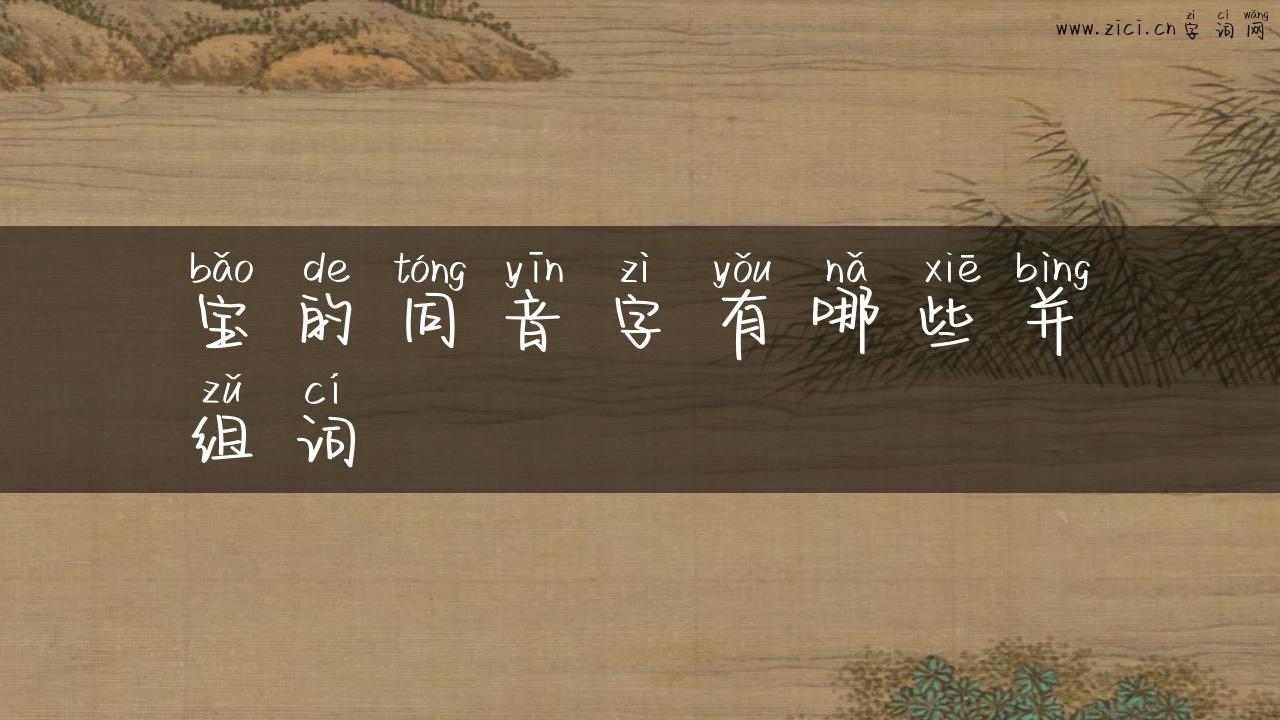 zì cí wǎng
www.zici.cn 字 词 网
bǎo de tóng yīn zì yǒu nǎ xiē bìng
宝 的 同 音 字 有 哪 些 并
zǔ cí
组 词